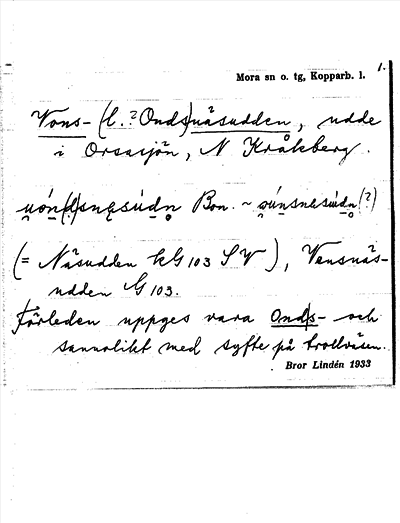 1.
Mora sn o. tg, Kopparb. l.
Vons- (l. ? Onds)näsudden, udde
i Orsasjön, N Kråkberg.
Bon. ~ (?)
(= Näsudden kG 103 SV), Vensnäs-
udden G 103.
Förleden uppges vara Onds- och
sannolikt med syfte på trollväsen.
Bror Lindén 1933